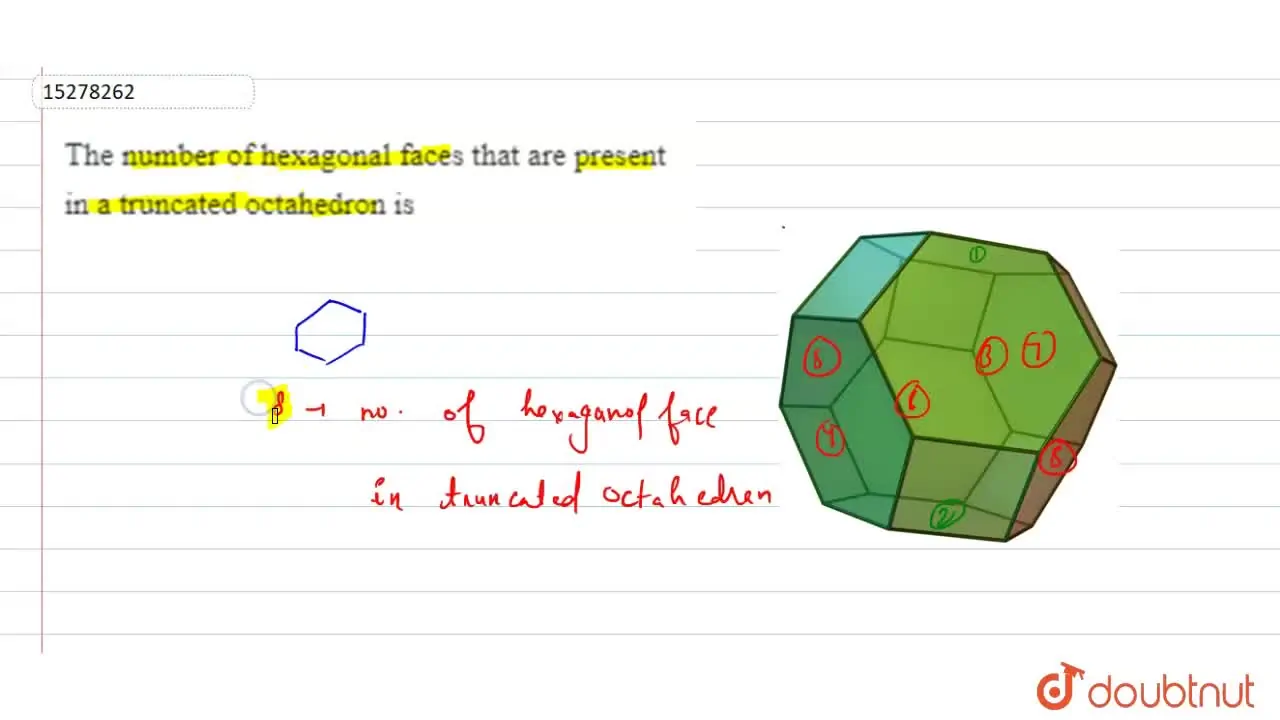 15278262
The number of hexagonal faces that are present
in a truncated octahedron is
8 → no. of hexaganol face
in truncated octahedren
①
⑦
③
⑥
④
②
doubtnut